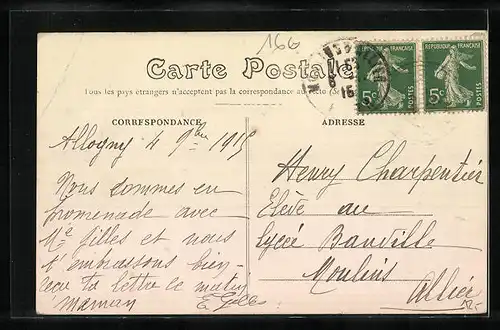 166
Carte Postale
Tous les pays étrangers n'acceptent pas la correspondance au recto
CORRESPONDANCE
ADRESSE
REPUBLIQUE FRANÇAISE
5c
POSTES
REPUBLIQUE FRANÇAISE
5c
POSTES
Allogny 4 9bre 1915
Nous sommes en
promenade avec
filles et nous
t'embrassons bien
reçu ta lettre ce matin
maman
Henry Charpentier
Elève au
Lycée Banville
Moulins
Allier